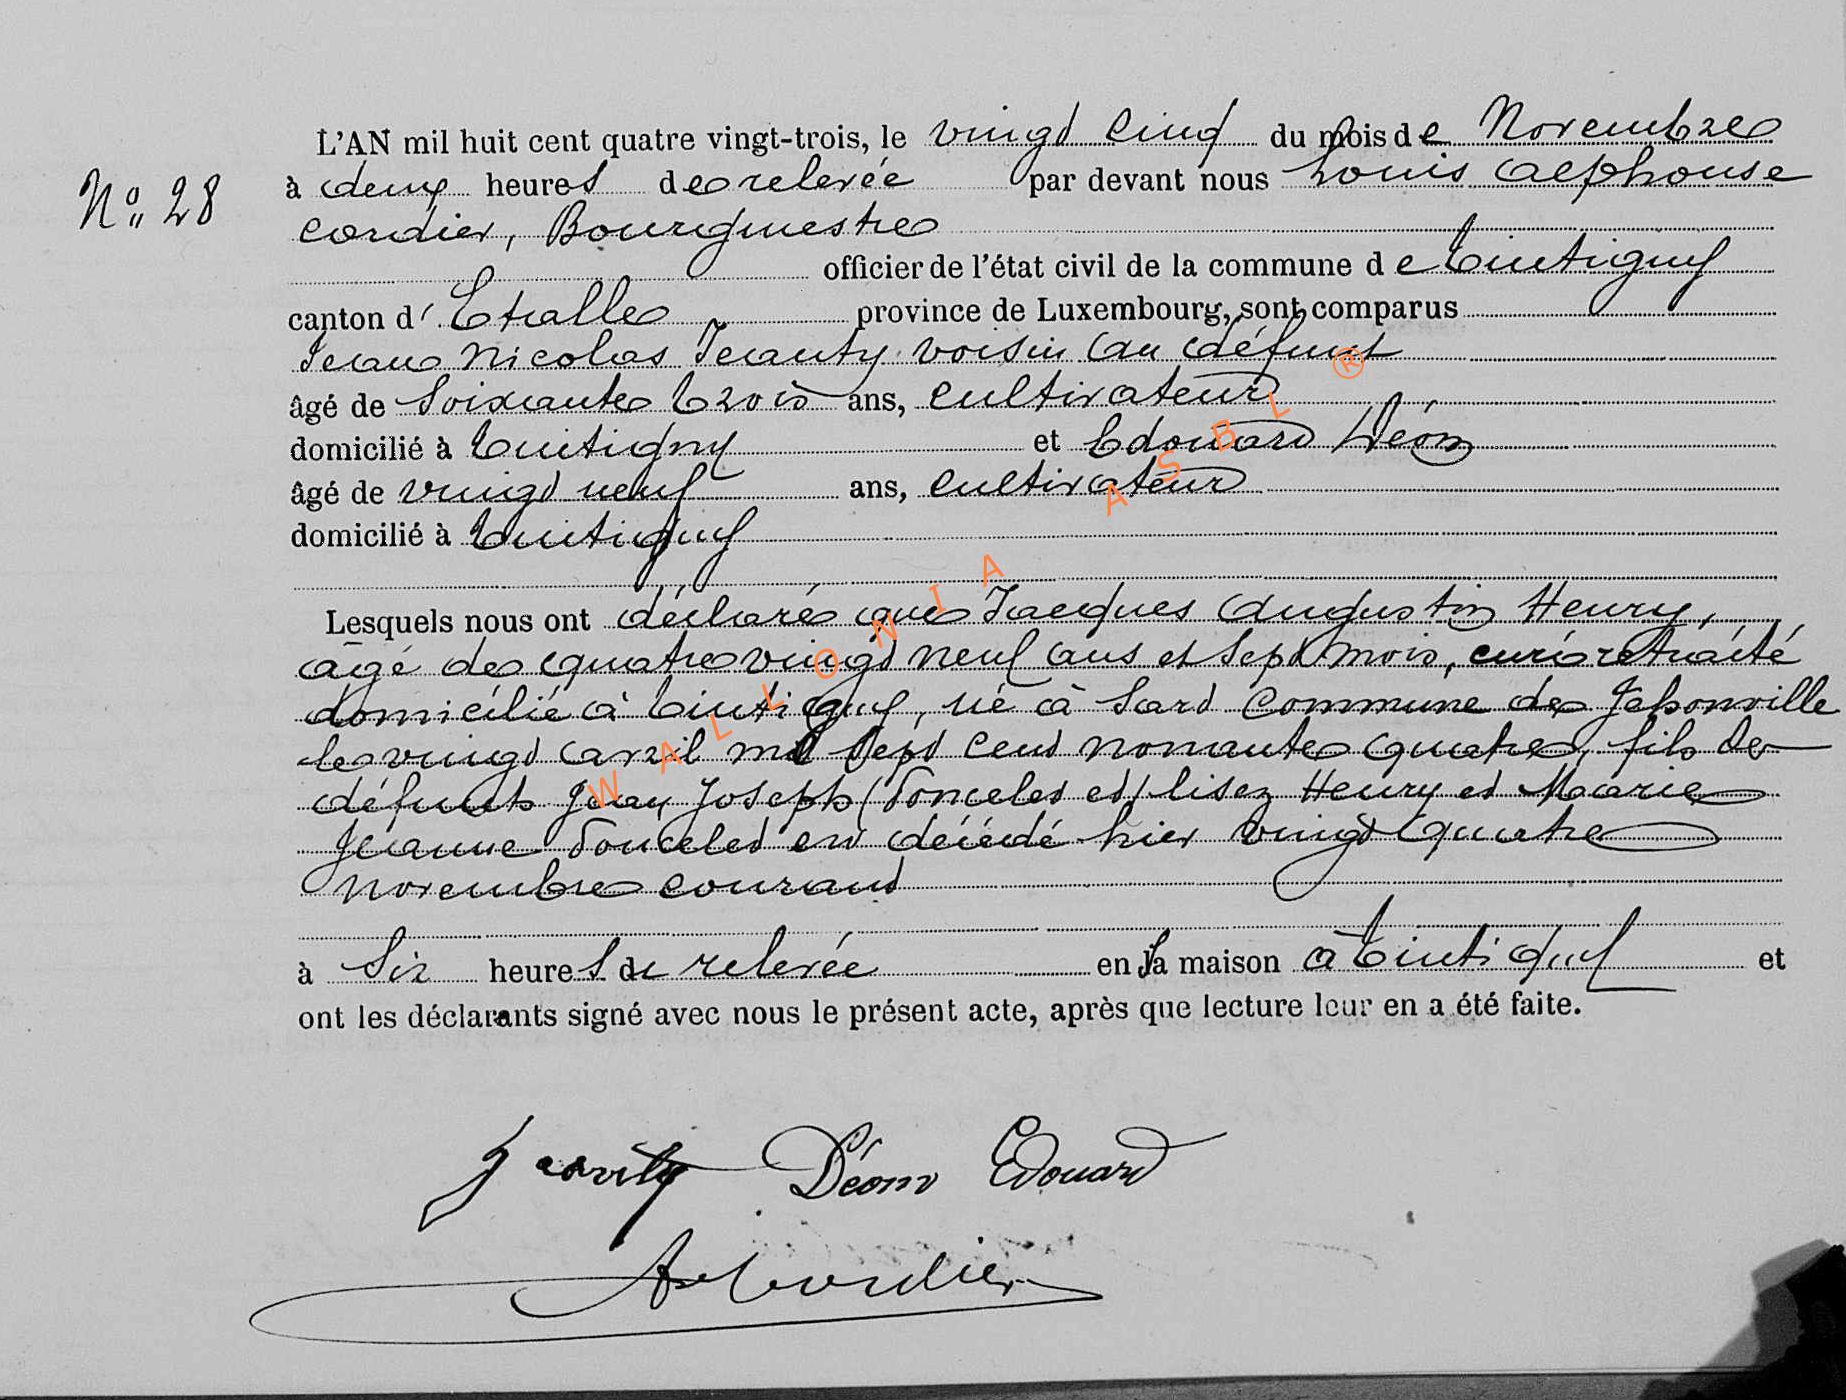 L'AN mil huit cent quatre vingt-trois, le vingt cinq du mois de Novembre
N° 28
à deux heures de relevée par devant nous Louis Alphonse
Cordier, Bourgmestre
officier de l'état civil de la commune de Tintigny
canton d'Etalle province de Luxembourg, sont comparus
Jean Nicolas Jeanty voisin du défunt
âgé de Soixante trois ans, cultivateur
domicilié à Tintigny et Edouard Déom
âgé de vingt neuf ans, cultivateur
domicilié à Tintigny
Lesquels nous ont déclaré que Jacques Augustin Henry,
âgé de quatre vingt neuf ans et sept mois, curé retraité
domicilié à Tintigny, né à Sart commune de Jehonville
le vingt avril mil sept cent nonante quatre, fils de
défunts Jean Joseph (Poncelet et) lisez Henry et Marie
Jeanne Poncelet est décédé hier vingt quatre
novembre courant
à Six heures de relevée en sa maison à Tintigny et
ont les déclarants signé avec nous le présent acte, après que lecture leur en a été faite.
Jeanty Déom Edouard
A Cordier
WALLONIA ASBL ®